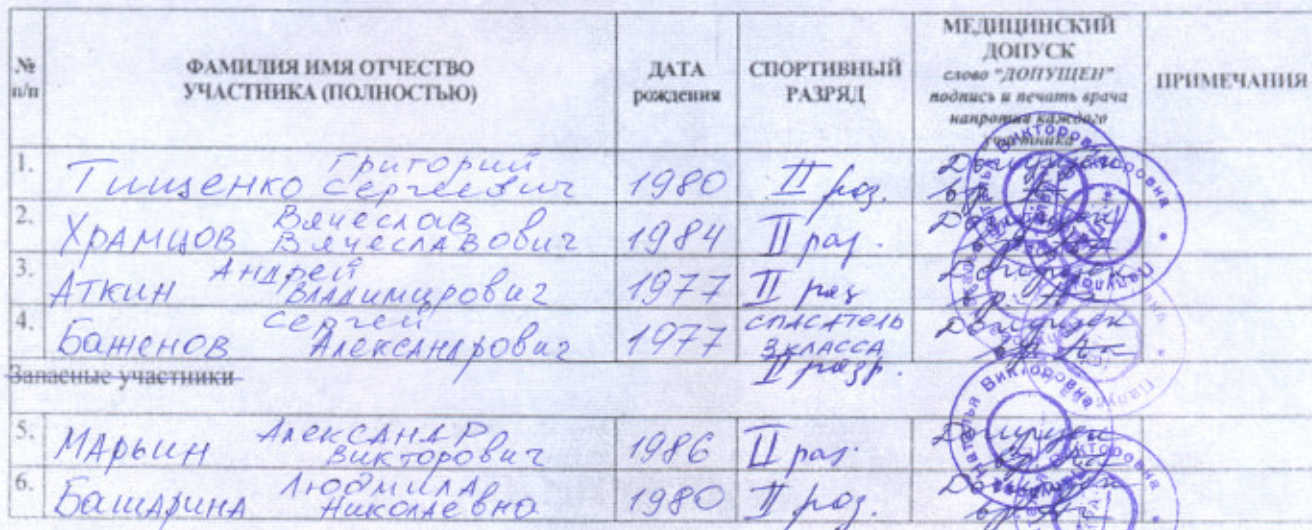 № п/п ФАМИЛИЯ ИМЯ ОТЧЕСТВО УЧАСТНИКА (ПОЛНОСТЬЮ) ДАТА рождения СПОРТИВНЫЙ РАЗРЯД МЕДИЦИНСКИЙ ДОПУСК слово "ДОПУЩЕН" подпись и печать врача напротив каждого участника ПРИМЕЧАНИЯ
1. Тищенко Григорий Сергеевич 1980 II раз. Допущен
2. Храмцов Вячеслав Вячеславович 1984 II раз. Допущен
3. Аткин Андрей Владимирович 1977 II раз Допущен
4. Баженов Сергей Александрович 1977 спасатель 3 класса II разр. Допущен
Запасные участники
5. Марьин Александр Викторович 1986 II раз. Допущен
6. Башарина Людмила Николаевна 1980 II раз. Допущен